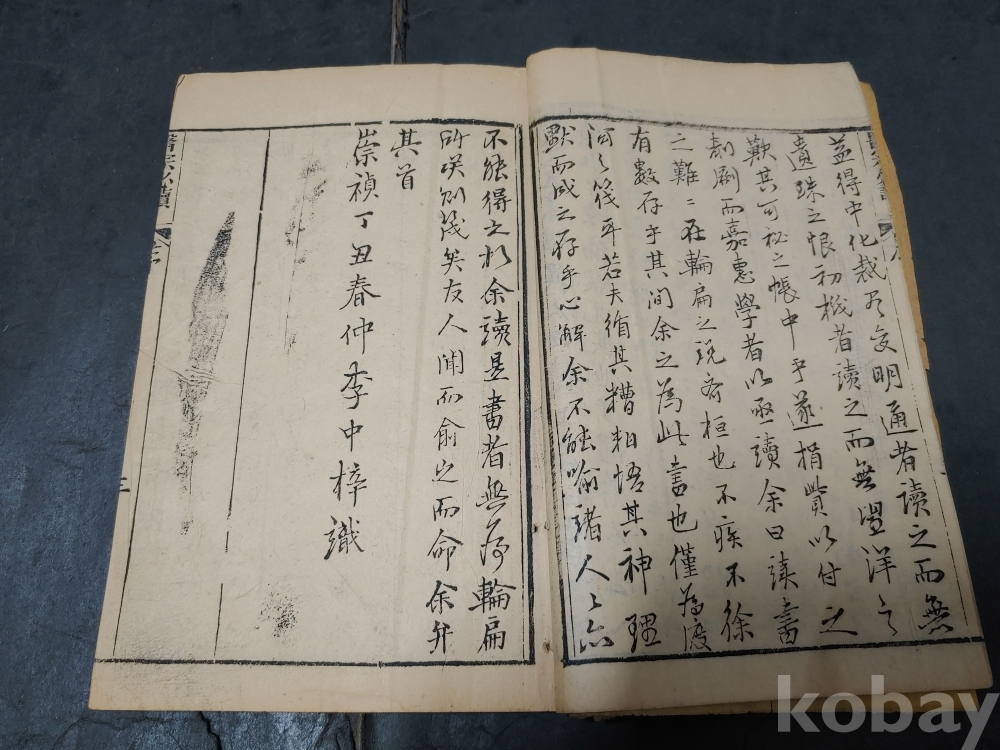 益得中化裁盡變明通者讀之而無
遺珠之恨初機者讀之而無望洋之
歎其可祕之帳中乎遂捐貲以付之
剞劂而嘉惠學者以亟讀余曰讀書
之難〻在輪扁之說齊桓也不疾不徐
有數存乎其间余之為此書也僅為渡
河之筏耳若夫循其糟粕悟其神理
默而成之存乎心解余不能喻諸人〻亦
不能得之於余讀是書者無為輪扁
所咲則幾矣友人聞而俞之而命余弁
其首
崇禎丁丑春仲李中梓識
醫宗必讀
kobay